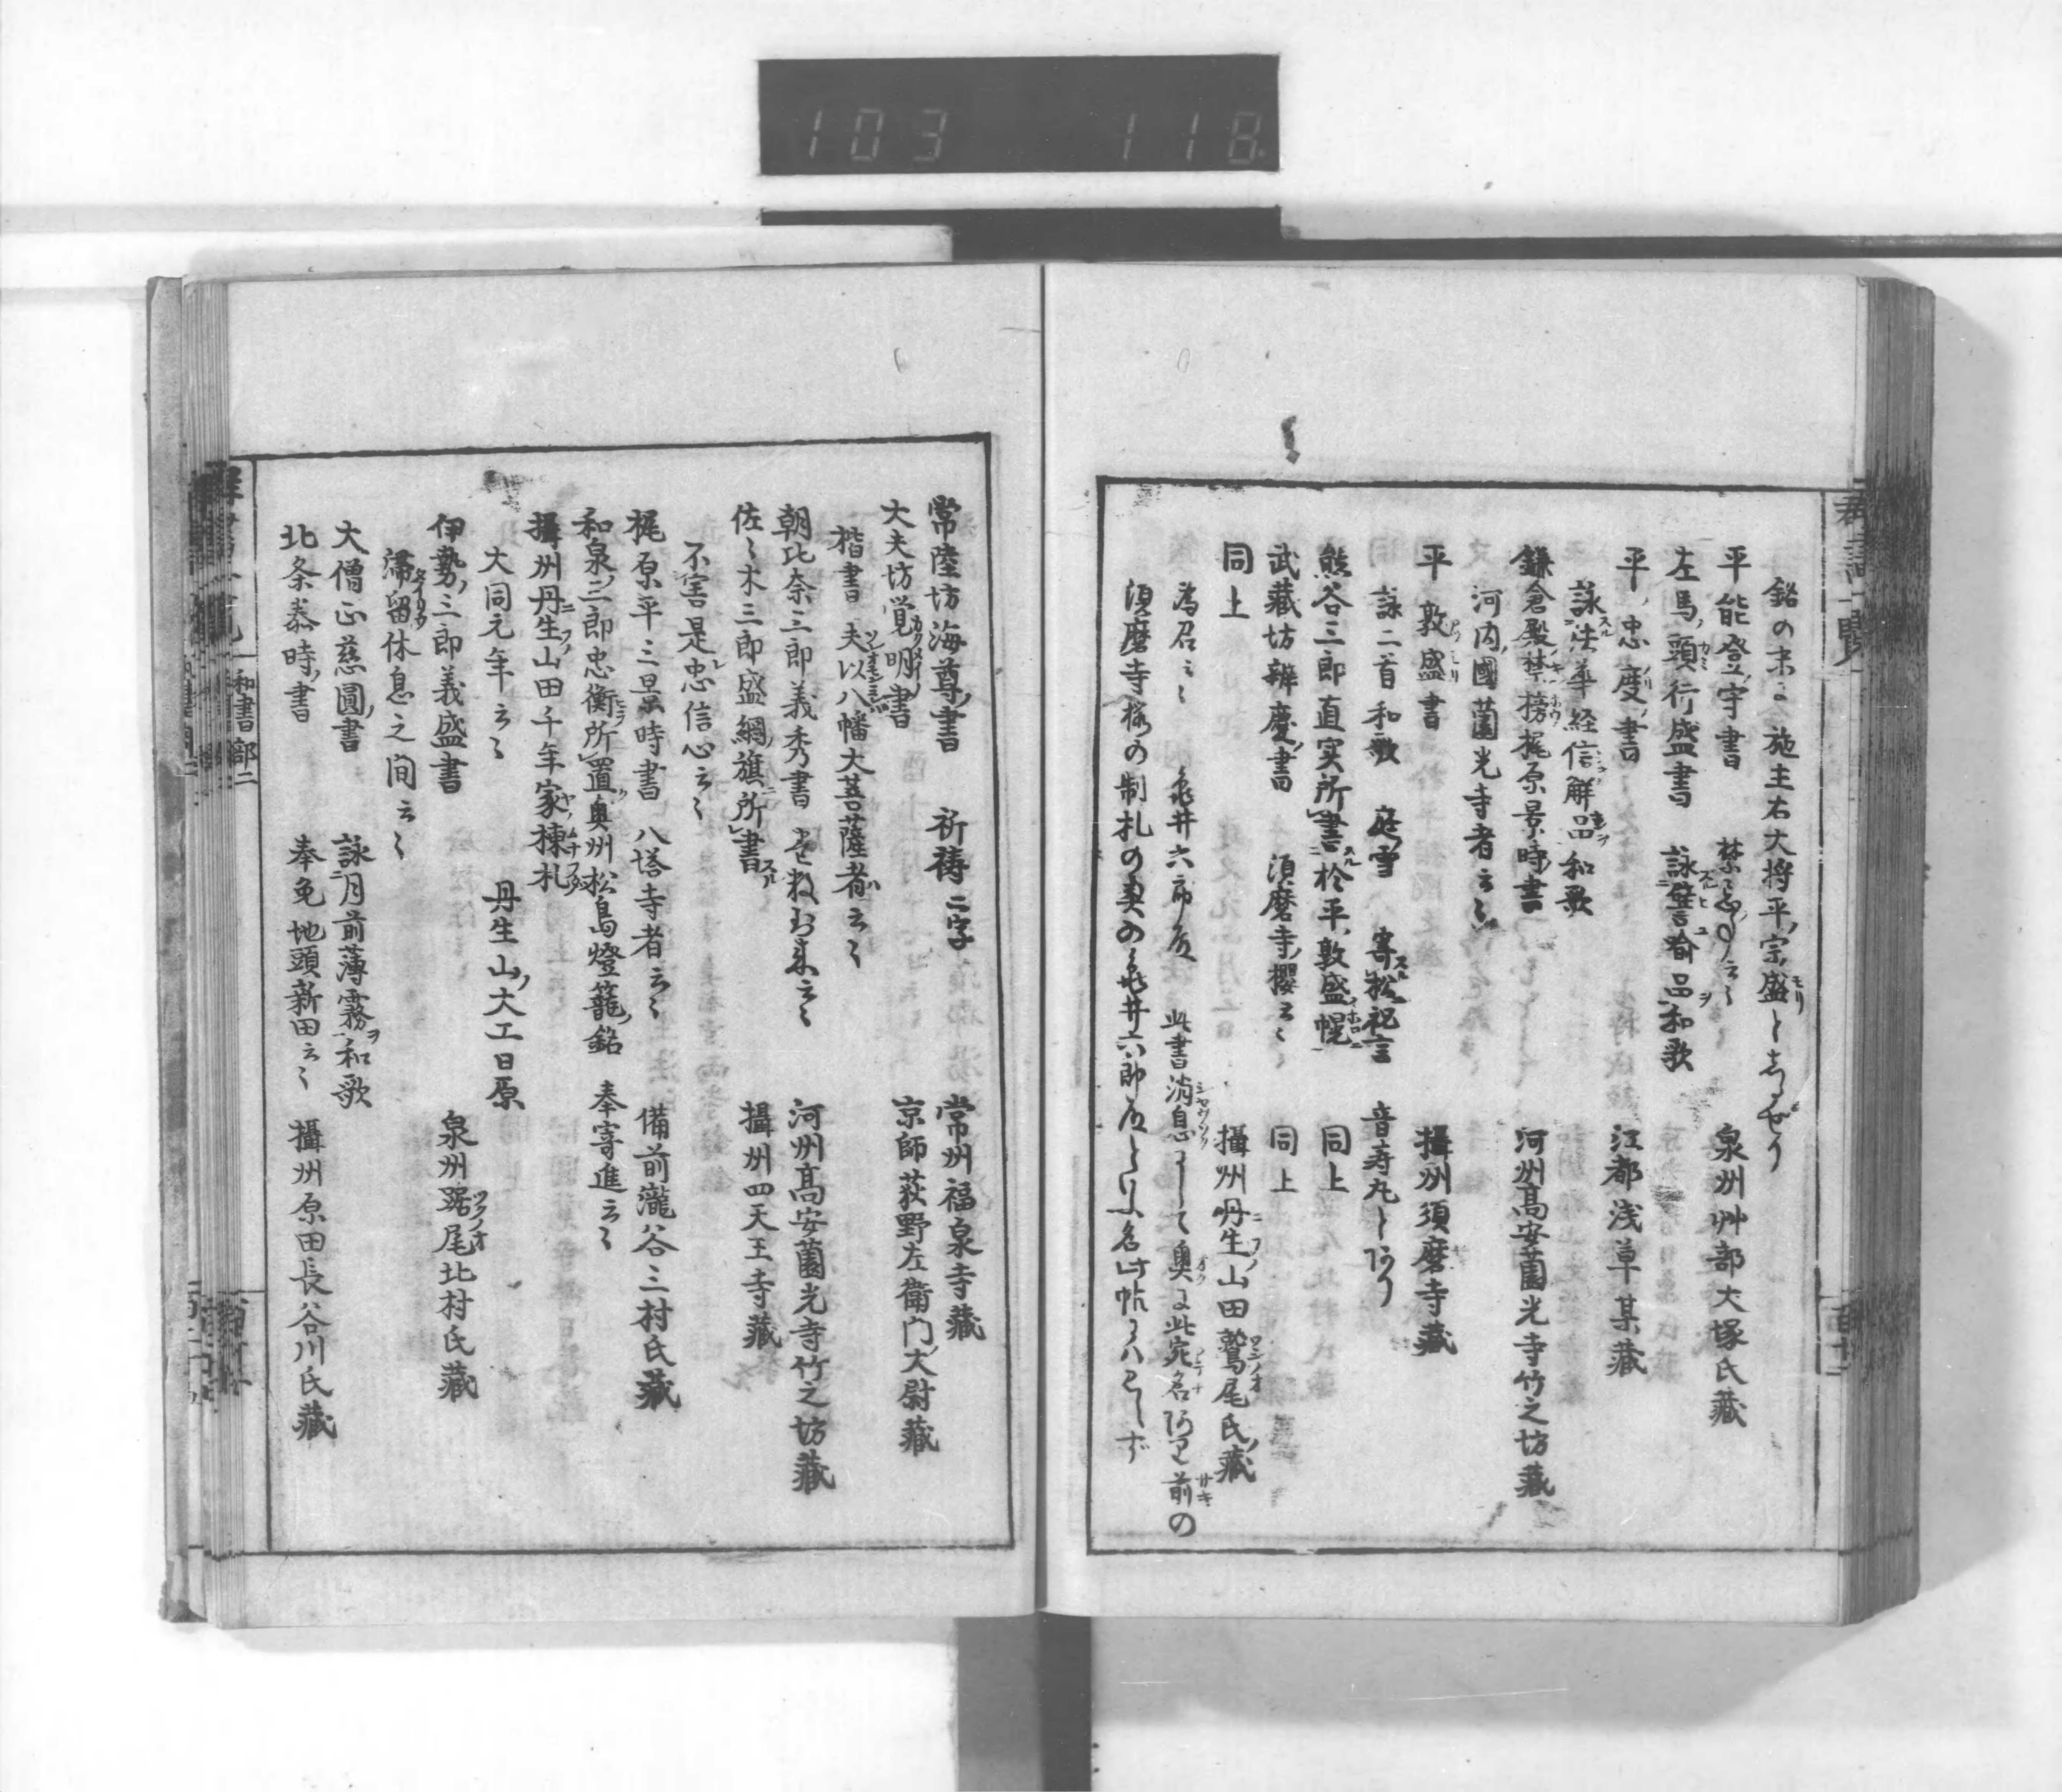 103 118
銘の末に施主右大将平ノ宗盛としるせり
平ノ能登ノ守書 禁 云〻 泉州艸部大塚氏藏
左馬ノ頭行盛書 詠譬喩品和歌
平ノ忠度ノ書 江都浅草某藏
詠法華経信解品和歌
鎌倉殿禁榜梶原景時書 河州高安薗光寺竹之坊藏
河内國薗光寺者云〻
平ノ敦盛書 攝州須磨寺藏
詠二首和歌 庭ノ雪 寄松祝言 音寿丸とあり
熊谷三郎直実所書於平ノ敦盛幌 同上
武藏坊辨慶ノ書 須磨寺ノ櫻云〻 同上
同上 攝州丹生山田鷲尾氏ノ藏
為召云〻 亀井六郎殿 此書消息にして奥に此宛名あり前の
須磨寺桜の制札の裏の亀井六郎殿といふ名此帖にハのせず
常陸坊海尊ノ書 祈祷二字 常州福泉寺藏
大夫坊覚明ノ書 京師荻野左衞門ノ大尉藏
楷書 夫以八幡大菩薩者云〻
朝比奈三郎義秀書 云〻 河州髙安薗光寺竹之坊藏
佐〻木三郎盛綱旗所書 攝州四天王寺藏
不害是忠信心云〻
梶原平三景時書 八塔寺者云〻 備前瀧谷三村氏藏
和泉ノ三郎忠衡所置奥州松島燈籠ノ銘 奉寄進云〻
攝州丹生山田千年家棟札
大同元年云〻 丹生山ノ大工日原
伊勢ノ三郎義盛書 泉州踞尾北村氏藏
滞留休息之间云〻
大僧正慈圓ノ書 詠月前薄霧和歌
北条泰時ノ書 奉免 地頭新田云〻 攝州原田長谷川氏藏
和書部二